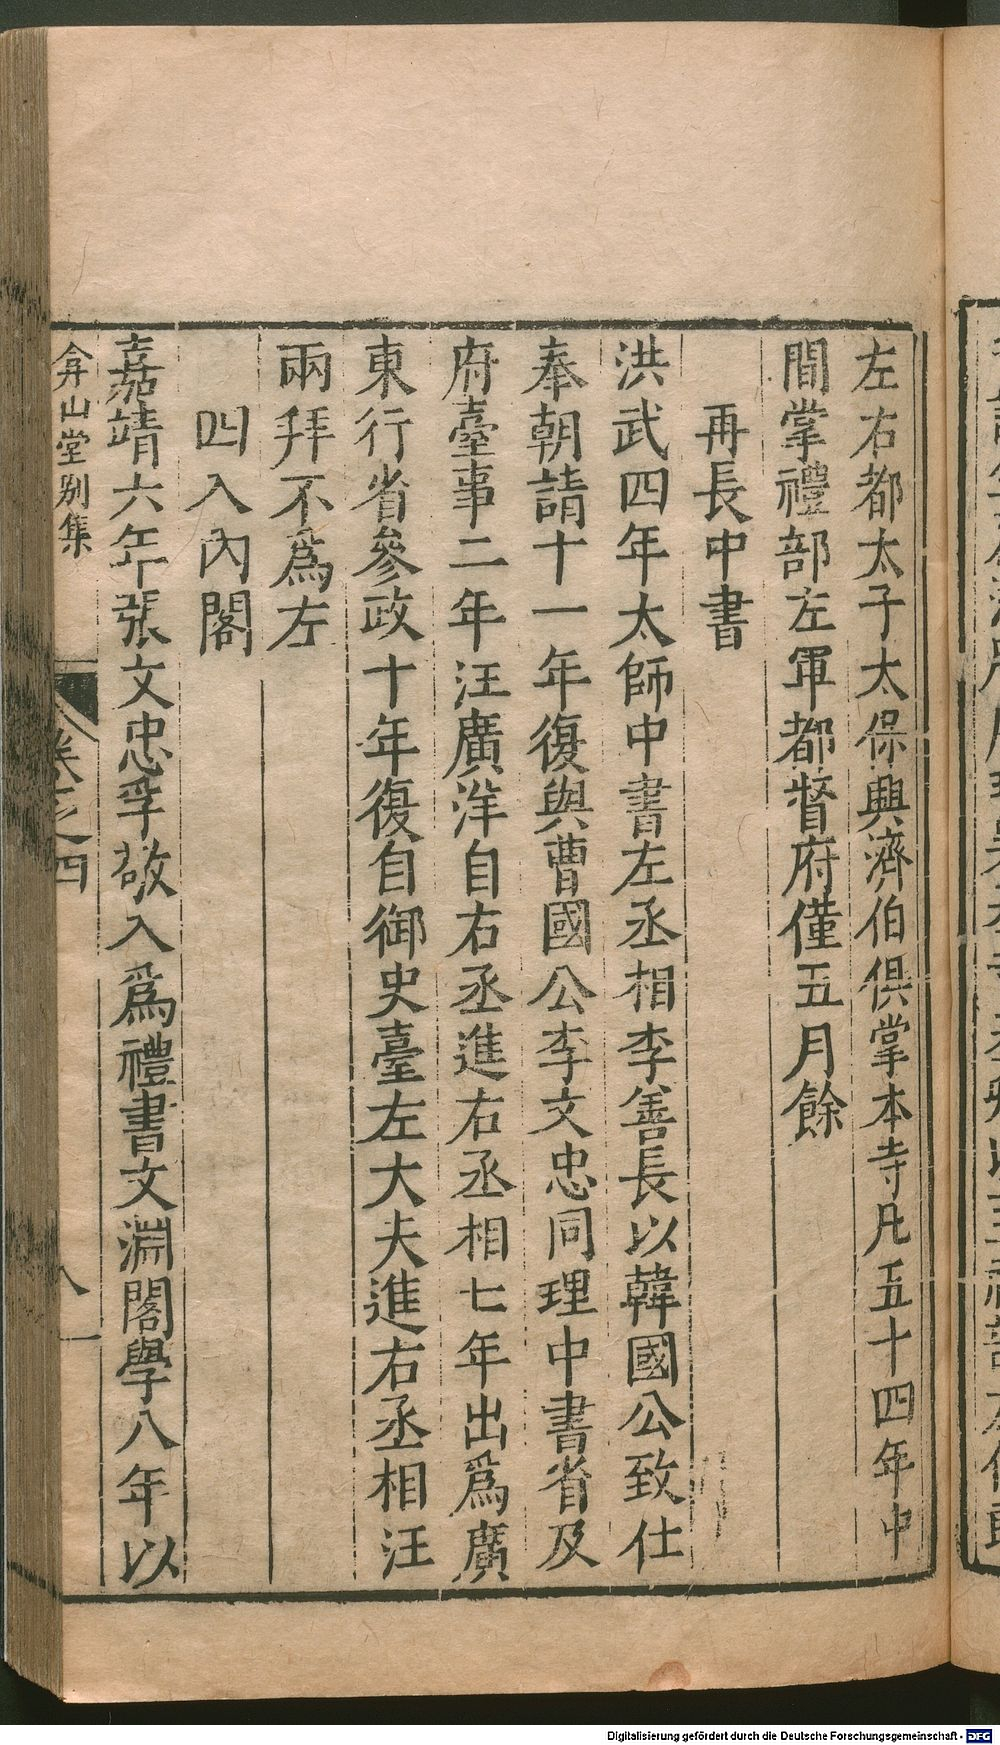 左右都太子太保興濟伯俱掌本寺凡五十四年中
間掌禮部左軍都督府僅五月餘
再長中書
洪武四年太師中書左丞相李善長以韓國公致仕
奉朝請十一年復與曹國公李文忠同理中書省及
府臺事二年汪廣洋自右丞進右丞相七年出爲廣
東行省參政十年復自御史臺左大夫進右丞相汪
兩拜不爲左
四入內閣
嘉靖六年張文忠孚敬入爲禮書文淵閣學八年以
弇山堂别集
卷之四
八
Digitalisierung gefördert durch die Deutsche Forschungsgemeinschaft - DFG